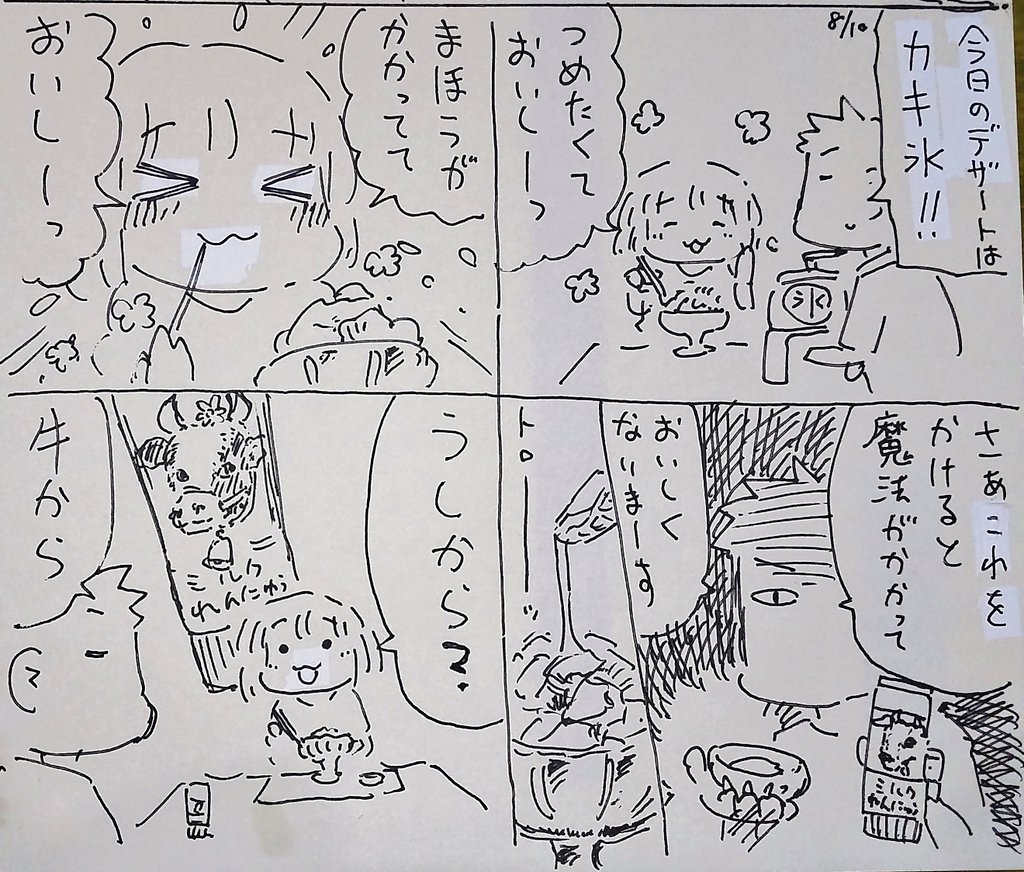 8/10
今日のデザートは
カキ氷!!
つめたくて
おいしーっ
まほうが
かかってて
おいしーっ
さあこれを
かけると
魔法がかかって
ミルク
れんにゅう
おいしく
なりまーす
トローーーッ
うしから?
ミルク
れんにゅう
牛から